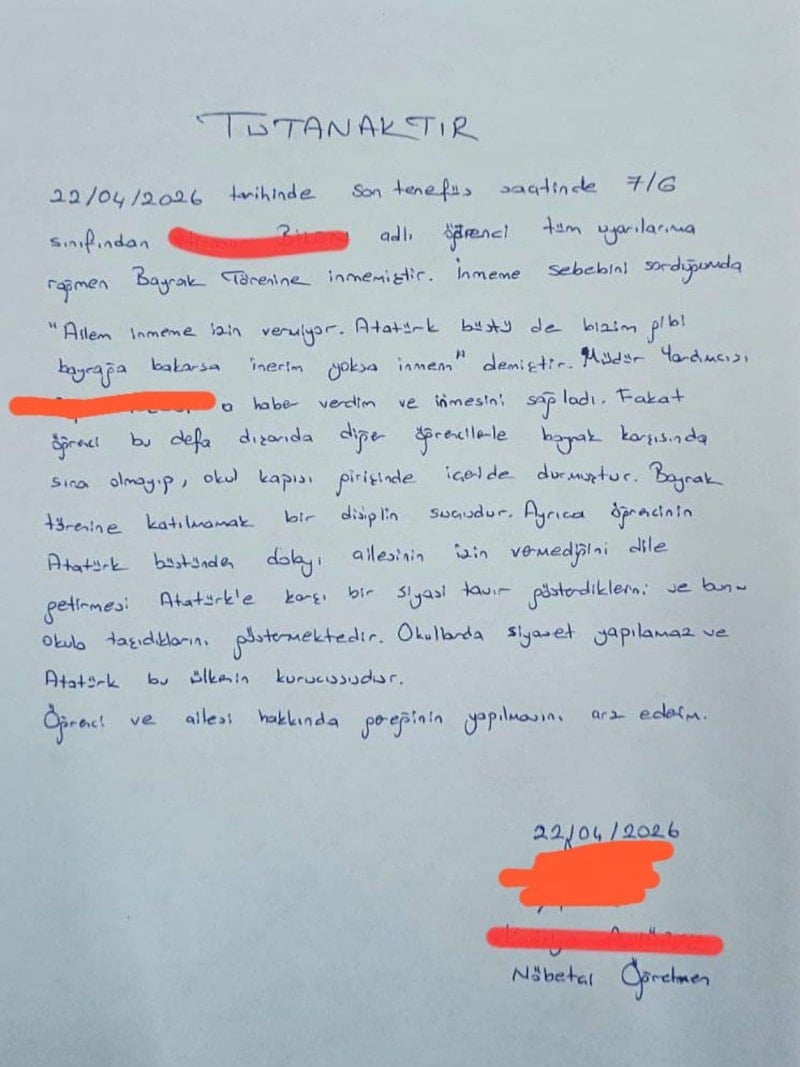 TUTANAKTIR
22/04/2026 tarihinde son tenefüs saatinde 7/G
sınıfından adlı öğrenci tüm uyarılarıma
rağmen Bayrak Törenine inmemiştir. İnmeme sebebini sorduğumda
"Ailem inmeme izin vermiyor. Atatürk büstü de bizim gibi
bayrağa bakarsa inerim yoksa inmem" demiştir. Müdür Yardımcısı
a haber verdim ve inmesini sağladı. Fakat
öğrenci bu defa dışarıda diğer öğrencilerle bayrak karşısında
sıra olmayıp, okul kapısı girişinde içeride durmuştur. Bayrak
törenine katılmamak bir disiplin suçudur. Ayrıca öğrencinin
Atatürk büstünden dolayı ailesinin izin vermediğini dile
getirmesi Atatürk'e karşı bir siyasi tavır gösterdiklerini ve bunu
okula taşıdıklarını göstermektedir. Okullarda siyaset yapılamaz ve
Atatürk bu ülkenin kurucusudur.
Öğrenci ve ailesi hakkında gereğinin yapılmasını arz ederim.
22/04/2026
Nöbetçi Öğretmen